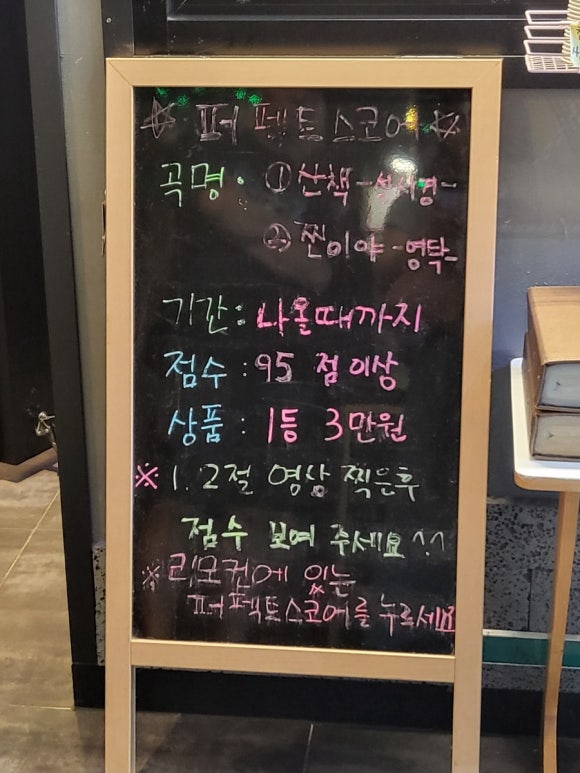 ☆ 퍼펙트스코어 ☆
곡명: ① 산책 -성시경-
② 찐이야 -영탁-
기간: 나올때까지
점수: 95 점이상
상품: 1등 3만원
※ 1. 2절 영상 찍은후
점수 보여 주세요^^
※ 리모컨에 있는
퍼펙트스코어를 누르세요